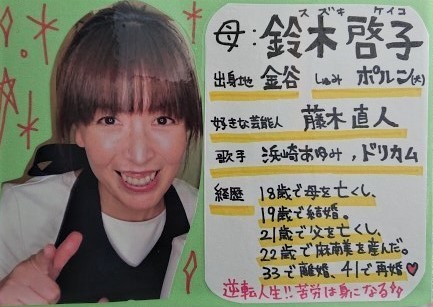 スズキ ケイコ
母:鈴木啓子
出身地 金谷 しゅみ ポルシェ(犬)
好きな芸能人 藤木直人
歌手 浜崎あゆみ,ドリカム
経歴 18歳で母を亡くし、
19歳で結婚。
21歳で父を亡くし、
22歳で麻南美を産んだ。
33で離婚、41で再婚♥
逆転人生!!苦労は身になる